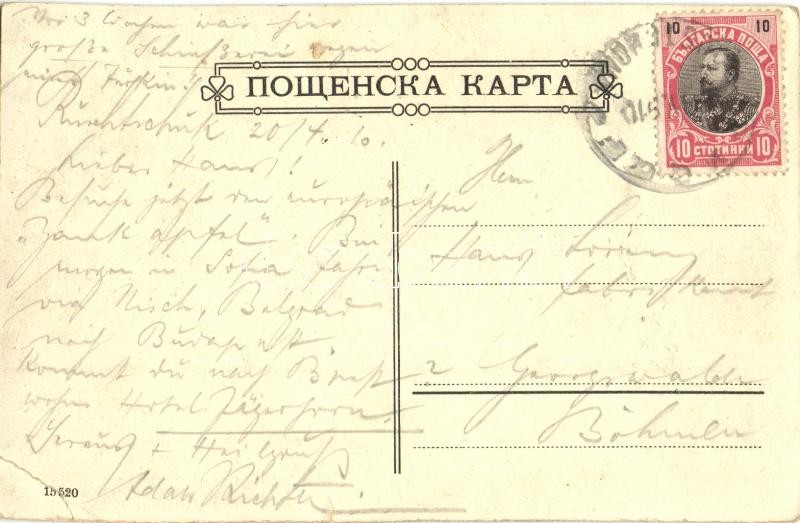 Vor 3 Wochen war hier
große Schießerei wegen
einer Türkin!
ПОЩЕНСКА КАРТА
10 10
БЪЛГАРСКА ПОЩА
10 СТОТИНКИ 10
Rustschuk 20/4 10.
Lieber Hans!
Besuche jetzt den europäischen
"Zankapfel". Bin
morgen in Sofia fahre
via Nisch, Belgrad
nach Budapest
Kommst du nach B ?
wohne Hotel Jägerhorn.
+ Heilgruß
Richter
Herrn
Hans
Georgswalde
Böhmen
15520